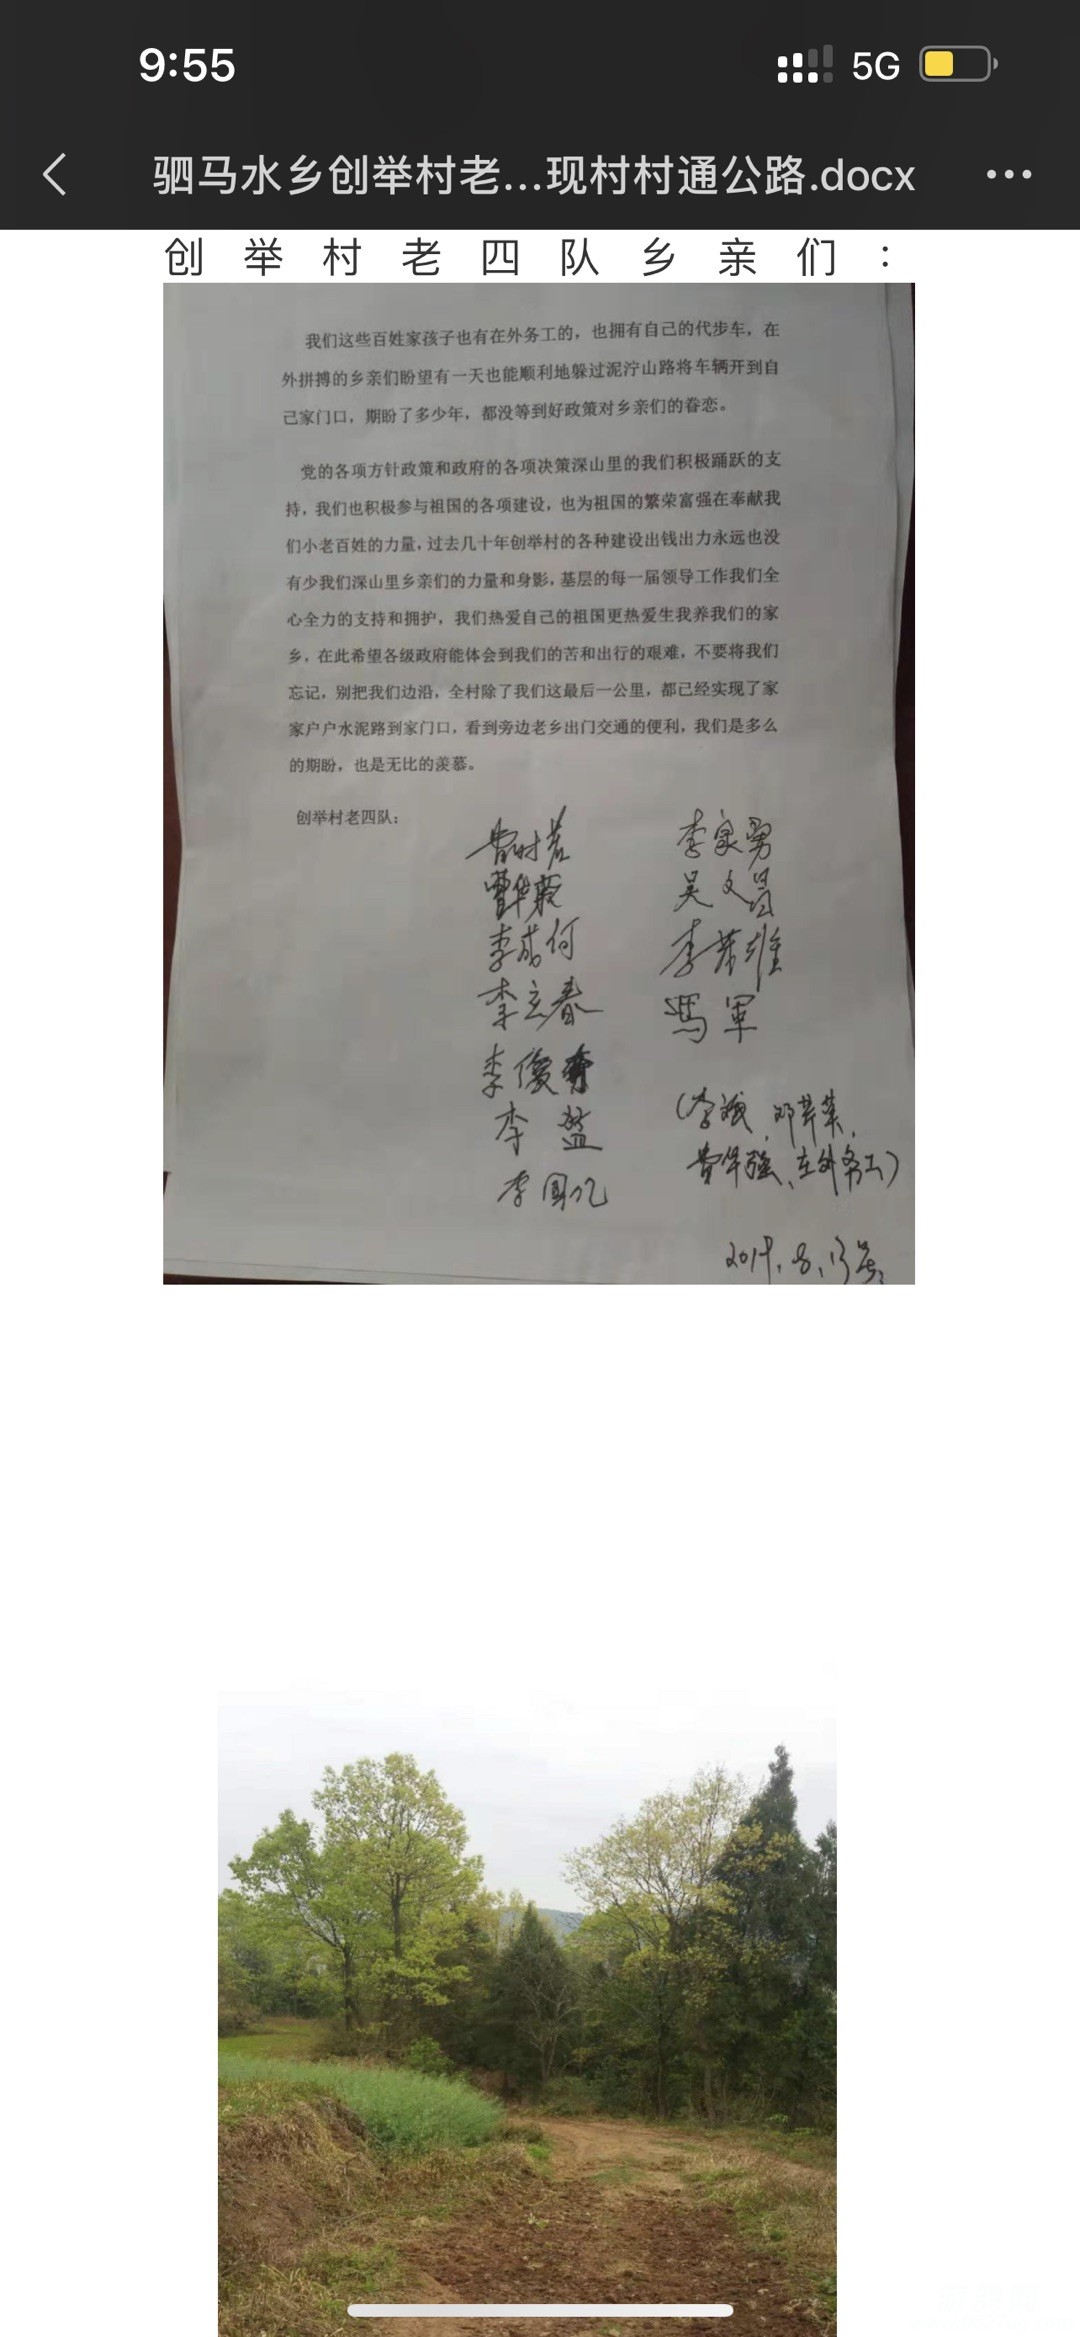 9:55
5G
驷马水乡创举村老...现村村通公路.docx
创举村老四队乡亲们：
我们这些百姓家孩子也有在外务工的，也拥有自己的代步车，在
外拼搏的乡亲们盼望有一天也能顺利地躲过泥泞山路将车辆开到自
己家门口，期盼了多少年，都没等到好政策对乡亲们的眷恋。
党的各项方针政策和政府的各项决策深山里的我们积极踊跃的支
持，我们也积极参与祖国的各项建设，也为祖国的繁荣富强在奉献我
们小老百姓的力量，过去几十年创举村的各种建设出钱出力永远也没
有少我们深山里乡亲们的力量和身影，基层的每一届领导工作我们全
心全力的支持和拥护，我们热爱自己的祖国更热爱生我养我们的家
乡，在此希望各级政府能体会到我们的苦和出行的艰难，不要将我们
忘记，别把我们边沿，全村除了我们这最后一公里，都已经实现了家
家户户水泥路到家门口，看到旁边老乡出门交通的便利，我们是多么
的期盼，也是无比的羡慕。
创举村老四队：
李家勇
吴文昌
李荣雄
李立春
馮軍
李俊
李
李国亿
邓芹菜，
在外务工）